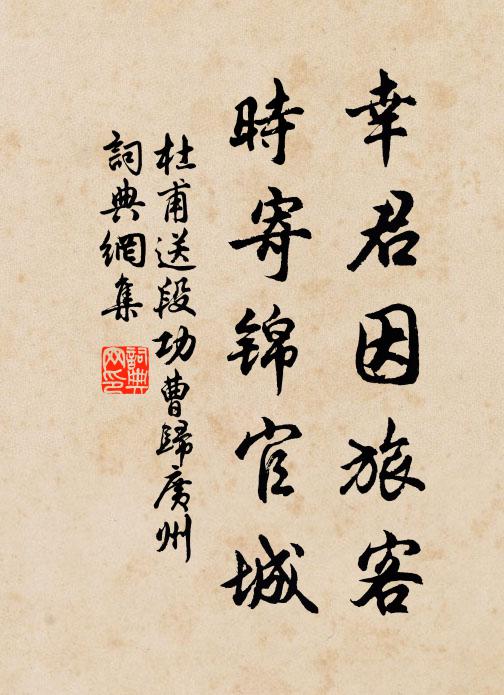 幸君因旅客
時寄錦官城
杜甫送段功曹歸廣州
詞典網集
詞典
网印